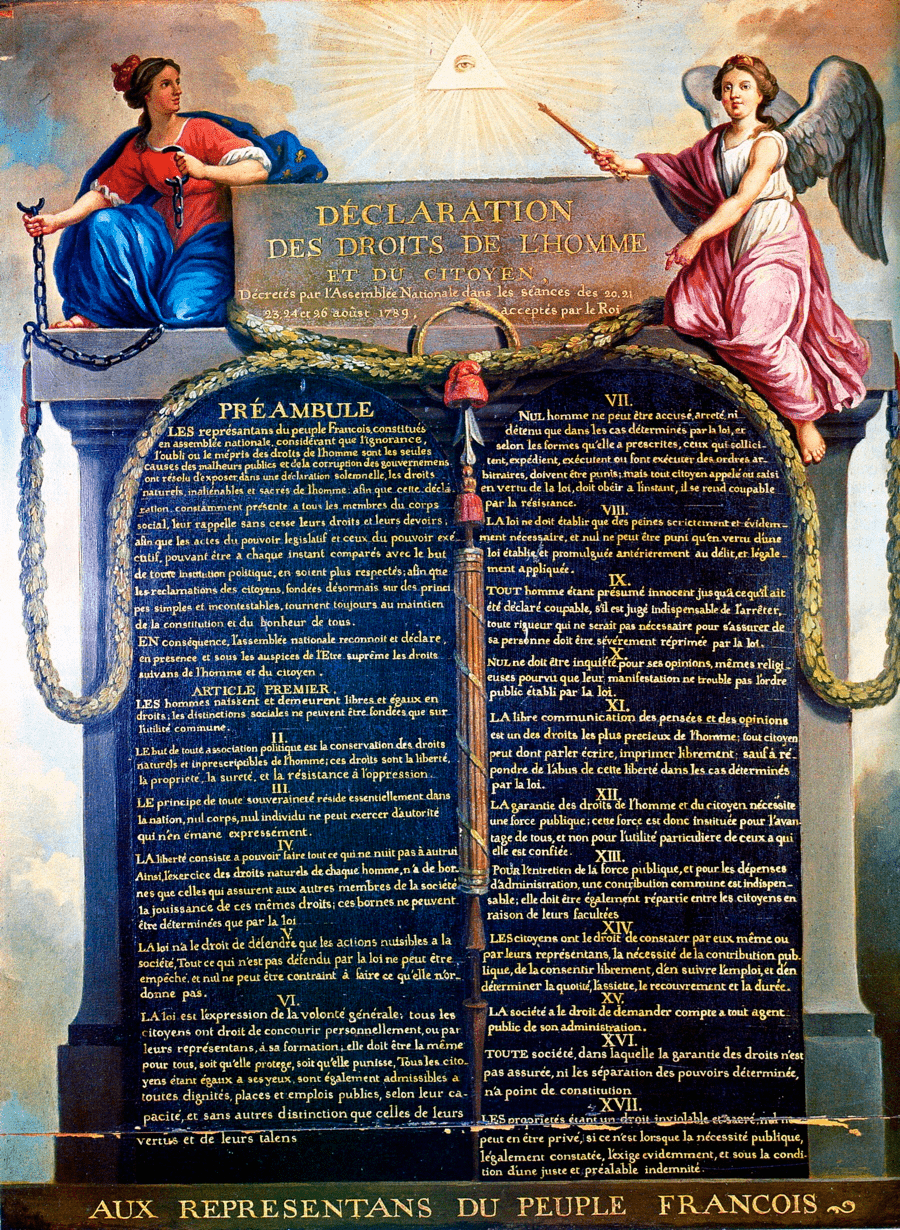 DÉCLARATION
DES DROITS DE L'HOMME
ET DU CITOYEN,
Décretés par l'Assemblée Nationale dans les séances des 20.21
23.24 et 26 août 1789, acceptés par le Roi
PRÉAMBULE
LES représentans du peuple François, constitués
en assemblée nationale, considérant que l'ignorance,
l'oubli ou le mépris des droits de l'homme sont les seules
causes des malheurs publics et de la corruption des gouvernemens
ont résolu d'exposer, dans une déclaration solemnelle, les droits
naturels, inaliénables et sacrés de l'homme: afin que cette décla-
ration, constamment présente a tous les membres du corps
social, leur rappelle sans cesse leurs droits et leurs devoirs;
afin que les actes du pouvoir legislatif et ceux du pouvoir exé-
cutif, pouvant être à chaque instant comparés avec le but
de toute institution politique, en soient plus respectés; afin que
les reclamations des citoyens, fondées désormais sur des princi
pes simples et incontestables, tournent toujours au maintien
de la constitution et du bonheur de tous.
EN conséquence, l'assemblée nationale reconnoit et déclare,
en presence et sous les auspices de l'Etre suprême les droits
suivans de l'homme et du citoyen.
ARTICLE PREMIER.
LES hommes naissent et demeurent libres et égaux en
droits; les distinctions sociales ne peuvent être fondées que sur
l'utilité commune.
II.
LE but de toute association politique est la conservation des droits
naturels et inprescriptibles de l'homme; ces droits sont la liberté,
la propriété, la sureté, et la résistance à l'oppression.
III.
LE principe de toute souveraineté réside essentiellement dans
la nation, nul corps, nul individu ne peut exercer d'autorité
qui n'en émane expressément.
IV.
LA liberté consiste a pouvoir faire tout ce qui ne nuit pas à autrui
Ainsi, l'exercice des droits naturels de chaque homme, n'a de bor-
nes que celles qui assurent aux autres membres de la société
la jouissance de ces mêmes droits; ces bornes ne peuvent
être déterminées que par la loi
V.
LA loi n'a le droit de défendre que les actions nuisibles a la
société, Tout ce qui n'est pas défendu par la loi ne peut être
empêché, et nul ne peut être contraint à faire ce qu'elle n'or-
donne pas.
VI.
LA loi est l'expression de la volonté générale; tous les
citoyens ont droit de concourir personnellement, ou par
leurs représentans, à sa formation; elle doit être la même
pour tous, soit qu'elle protege, soit qu'elle punisse, Tous les cito-
yens étant égaux a ses yeux, sont également admissibles à
toutes dignités, places et emplois publics, selon leur ca-
pacité, et sans autres distinction que celles de leurs
vertus et de leurs talens
VII.
NUL homme ne peut être accusé, arreté, ni
détenu que dans les cas déterminés par la loi, et
selon les formes qu'elle a prescrites, ceux qui sollici-
tent, expédient, exécutent ou font exécuter des ordres ar-
bitraires, doivent être punis; mais tout citoyen appelé ou saisi
en vertu de la loi, doit obéir a l'instant, il se rend coupable
par la résistance.
VIII.
LA loi ne doit établir que des peines strictement et évidem-
ment nécessaire, et nul ne peut être puni qu'en vertu d'une
loi établie et promulguée antérierement au délit, et légale-
ment appliquée.
IX.
TOUT homme étant présumé innocent jusqu'a ce qu'il ait
été déclaré coupable, s'il est jugé indispensable de l'arrêter,
toute rigueur qui ne serait pas nécessaire pour s'assurer de
sa personne doit être sévèrement réprimée par la loi.
X.
NUL ne doit être inquiété pour ses opinions, mêmes religi-
euses pourvu que leur manifestation ne trouble pas l'ordre
public établi par la loi.
XI.
LA libre communication des pensées et des opinions
est un des droits les plus precieux de l'homme; tout citoyen
peut donc parler écrire, imprimer librement: sauf à ré-
pondre de l'abus de cette liberté dans les cas déterminés
par la loi.
XII.
LA garantie des droits de l'homme et du citoyen nécessite
une force publique; cette force est donc instituée pour l'avan-
tage de tous, et non pour l'utilité particuliere de ceux a qui
elle est confiée.
XIII.
POUR l'entretien de la force publique, et pour les dépenses
d'administration, une contribution commune est indispen-
sable; elle doit être également répartie entre les citoyens en
raison de leurs facultées
XIV.
LES citoyens ont le droit de constater par eux même ou
par leurs représentans, la nécessité de la contribution pub-
lique, de la consentir librement, d'en suivre l'emploi, et d'en
déterminer la quotité, l'assiette, le recouvrement et la durée.
XV.
LA société a le droit de demander compte a tout agent
public de son administration.
XVI.
TOUTE société, dans laquelle la garantie des droits n'est
pas assurée, ni les séparation des pouvoirs déterminée,
n'a point de constitution
XVII.
LES propriétés étant un droit inviolable et sacré, nul ne
peut en être privé, si ce n'est lorsque la nécessité publique,
légalement constatée, l'exige evidemment, et sous la condi-
tion d'une juste et préalable indemnité.
AUX REPRESENTANS DU PEUPLE FRANCOIS